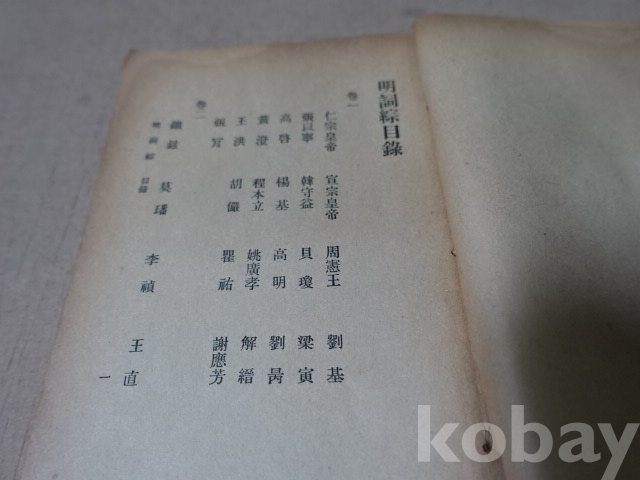 明詞綜目錄
卷一
仁宗皇帝 宣宗皇帝 周憲王 劉基
張以寧 韓守益 貝瓊 梁寅
高啓 楊基 高明 劉昺
黃澄 程本立 姚廣孝 解縉
王洪 胡儼 瞿祐 謝應芳
張肎
卷二
鐵鉉 莫璠 李禎 王直
明詞綜 目錄 一
kobay